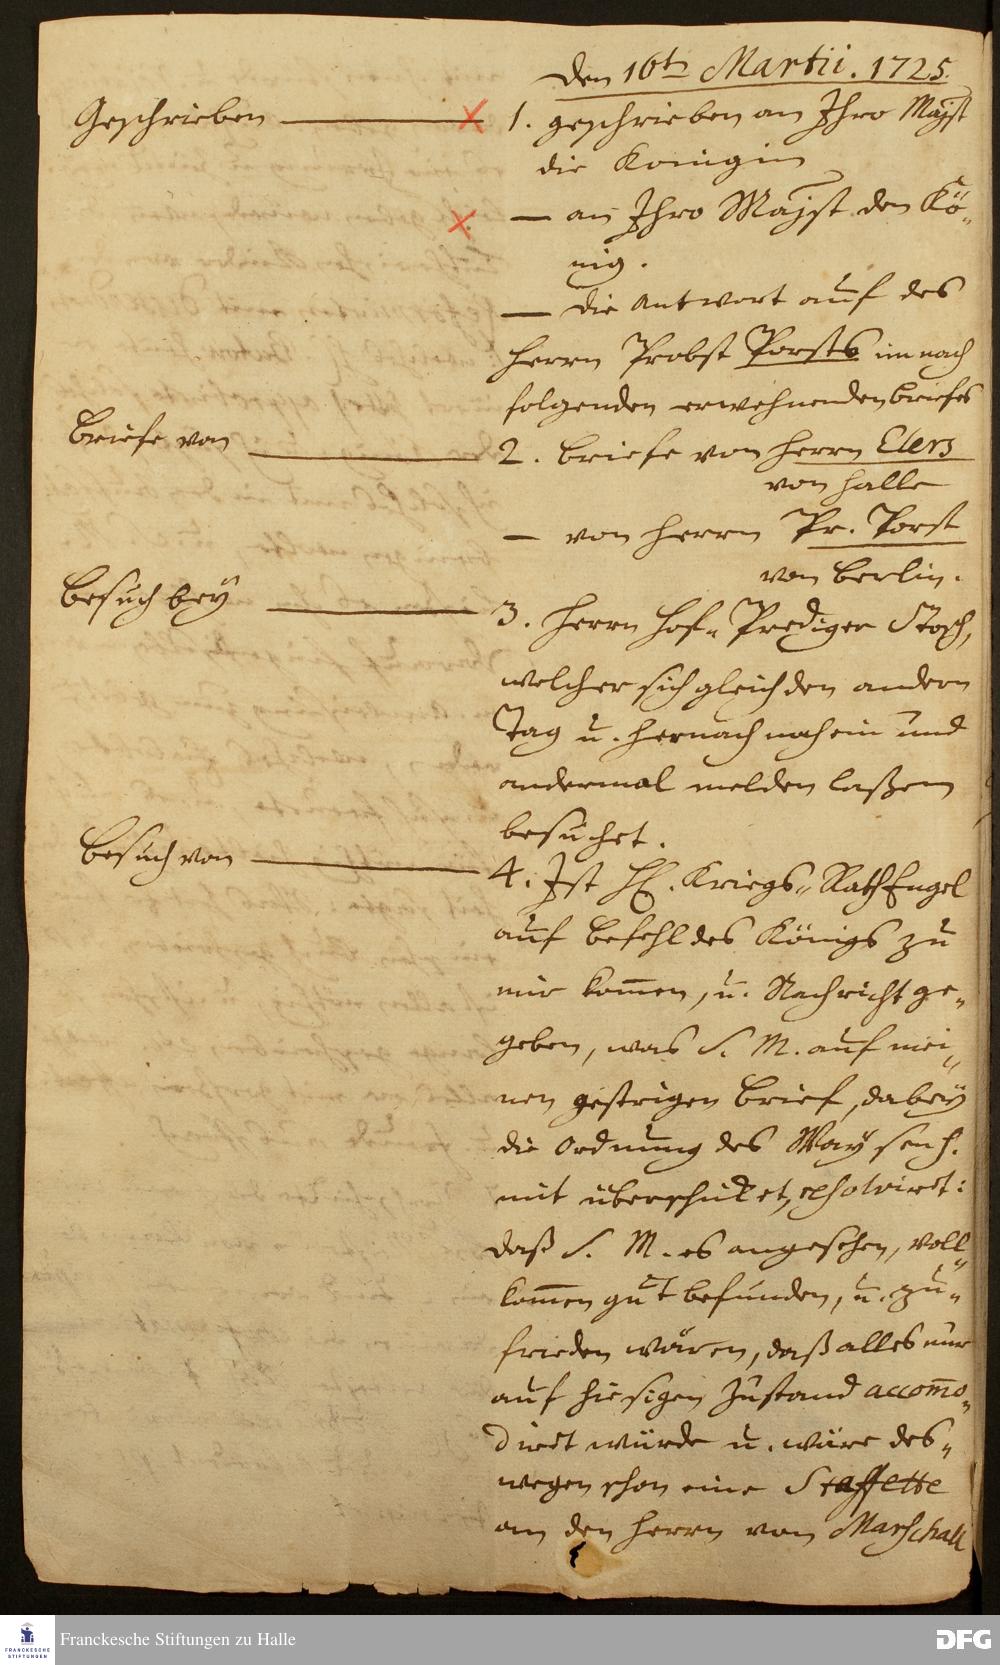 Den 16ten Martii. 1725.
Geschrieben 1. geschrieben an Ihro Majst
die Konigin
– an Ihro Majst den Kö„
nig.
– die Antwort auf des
Herrn Probst Porsts im nach
folgenden erwehnenden briefes
Briefe von 2. briefe von Herrn Elers
von Halle
– von Herrn Pr. Porst
von Berlin.
Besuch bey 3. Herrn Hof„ Prediger Stosch,
welcher sich gleich den andern
Tag u. hernach noch ein und
andermal melden laßen
besuchet.
Besuch von 4. Ist H. Kriegs„ Rath Engel
auf Befehl des Königs zu
mir kom̄en, u. Nachricht ge„
geben, was S. M. auf mei„
nen gestrigen Brief, dabey
die Ordnung des Waysenh.
mit überschicket, resolviret:
daß S. M. es angesehen, voll„
kom̄en gut befunden, u. zu„
frieden wären, daß alles nur
auf hiesigen Zustand accom̄o„
diret würde u. wäre des„
wegen schon eine Staffette
an den Herrn von Marschall
Franckesche Stiftungen zu Halle
FRANCKESCHE
STIFTUNGEN
DFG